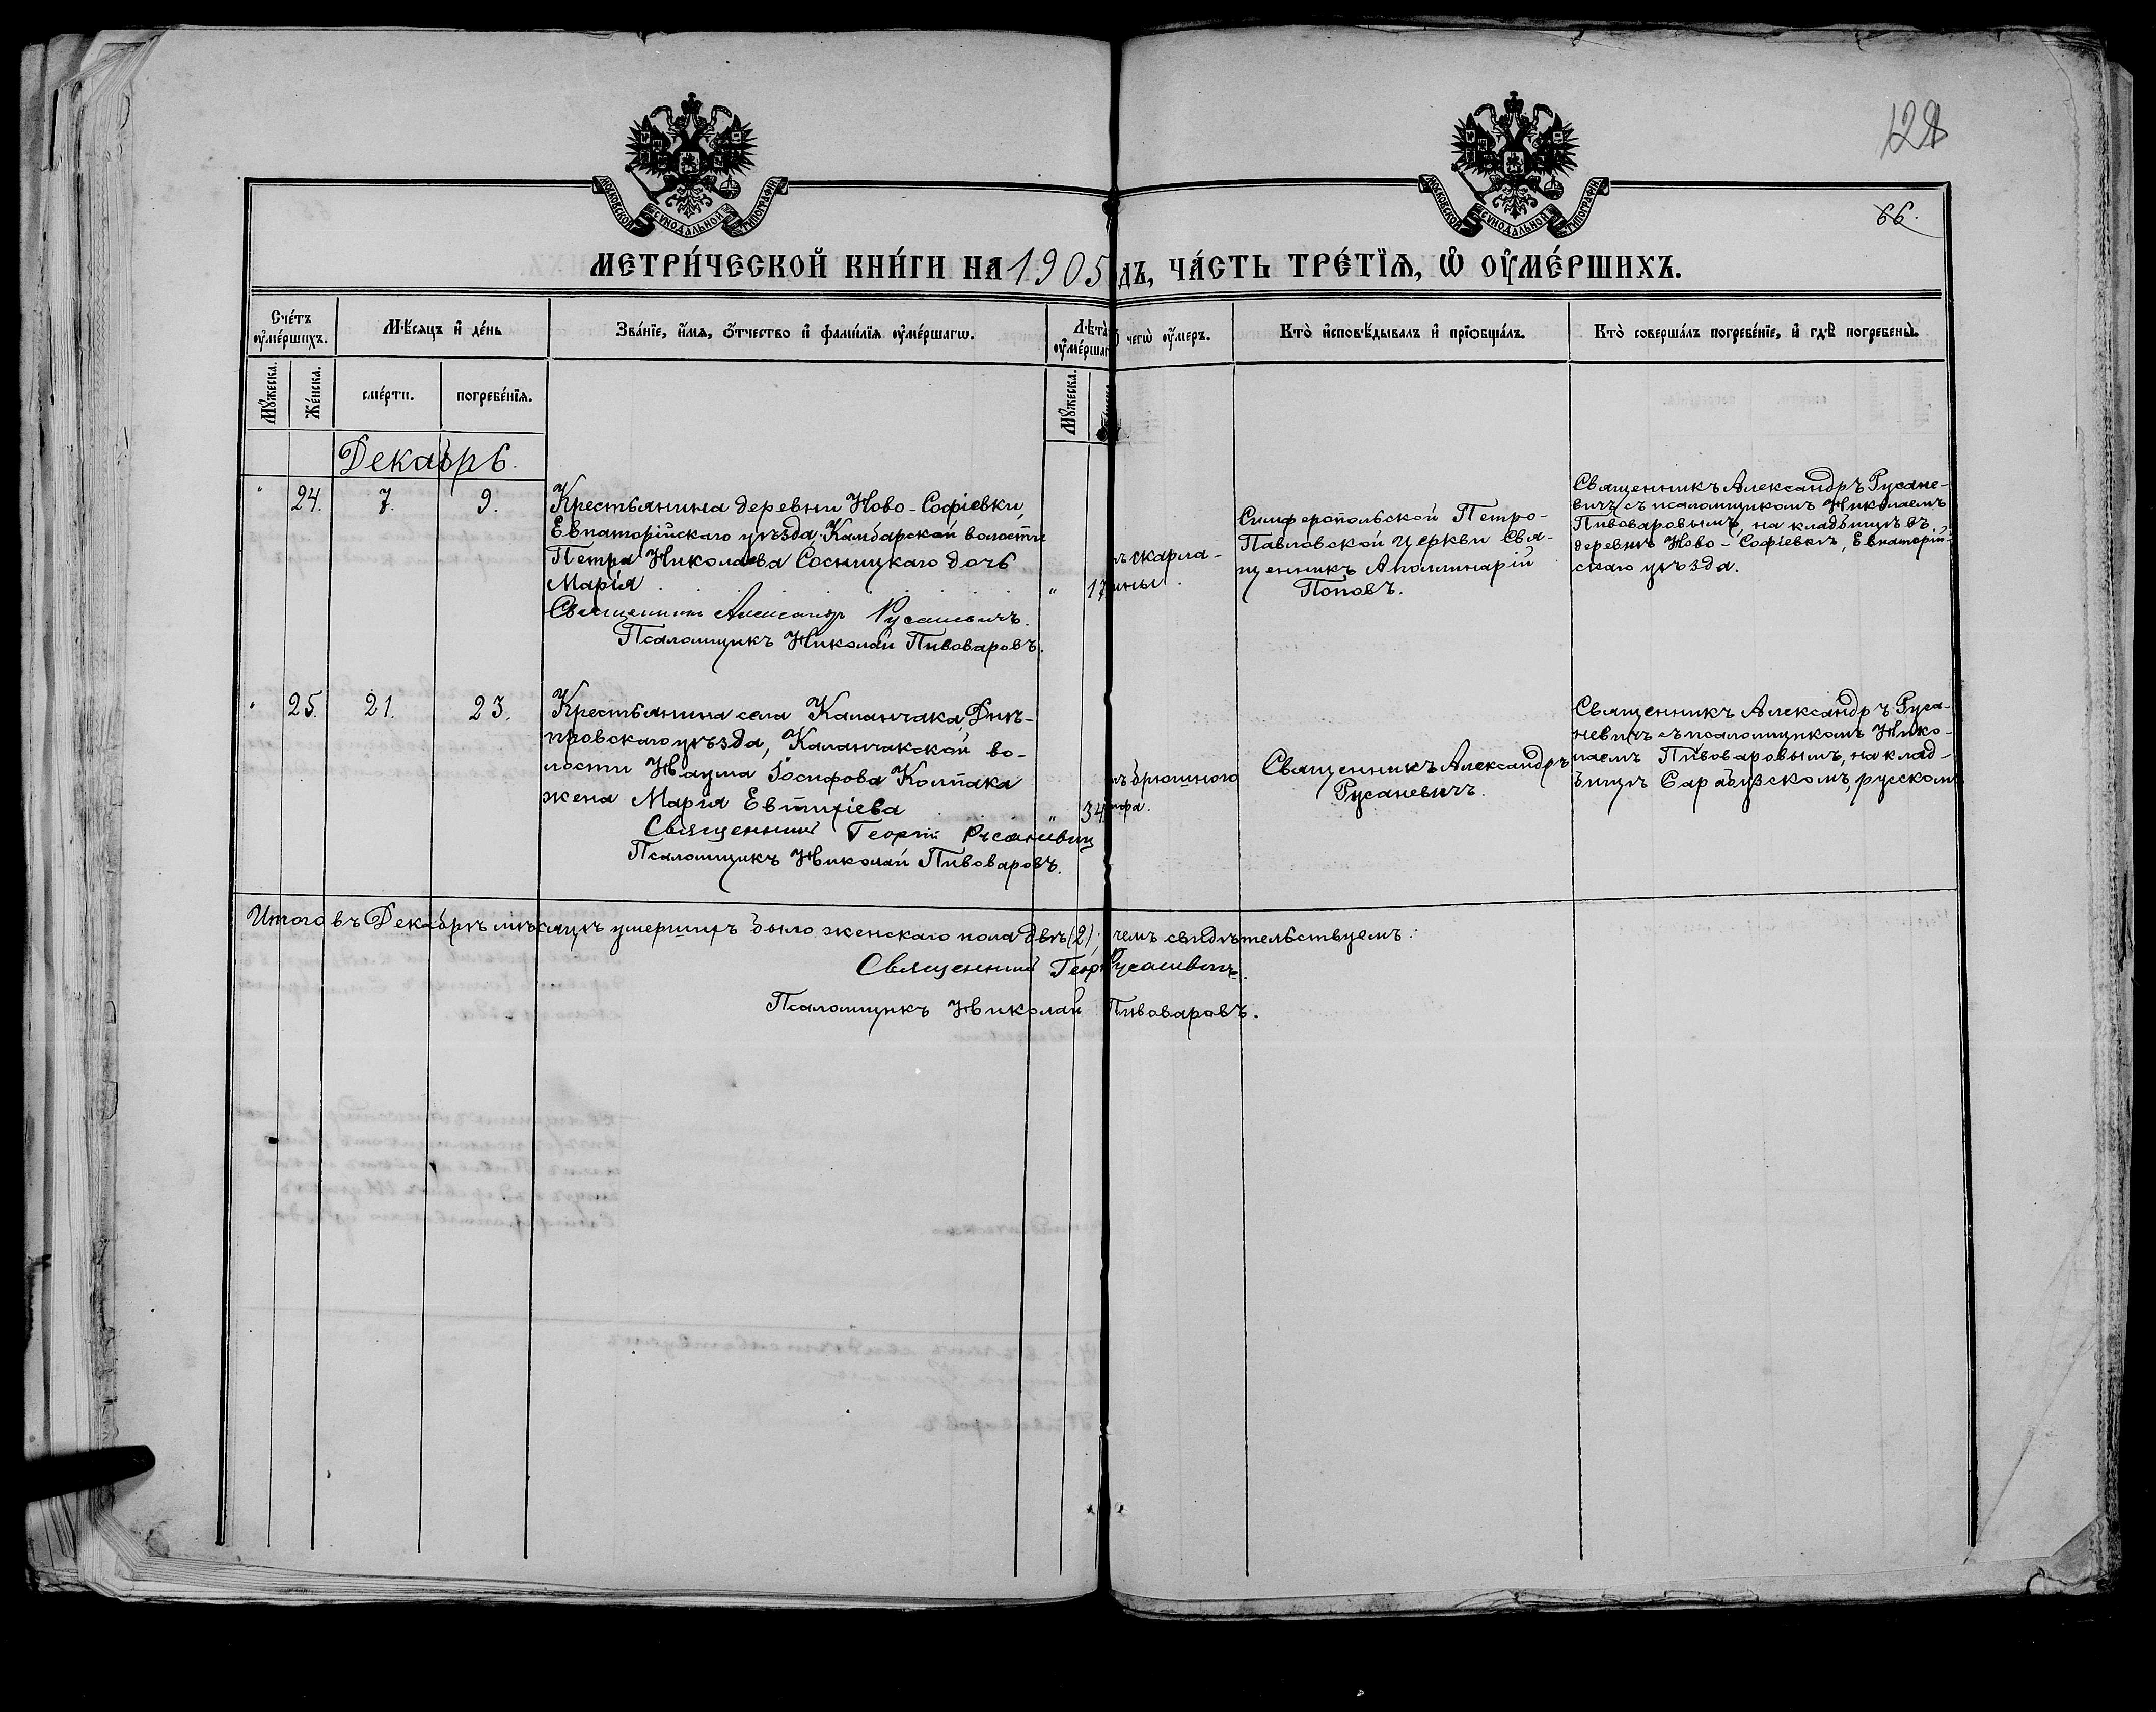 128
66.
МОСКОВСКОЙ СѴНОДАЛЬНОЙ ТИПОГРАФІИ
МОСКОВСКОЙ СѴНОДАЛЬНОЙ ТИПОГРАФІИ
МЕТРИ́ЧЕСКОЙ КНИ́ГИ НА 1905 ДЪ, ЧА́СТЬ ТРЕ́ТЇѦ, Ѡ҆ ОУ҆МЕ́РШИХЪ.
Счетъ оу҆ме́ршихъ.
Мѣ́сѧцъ и҆ де́нь
Зва́нїе, и҆́мѧ, ѻ҆́тчество и҆ фами́лїѧ оу҆ме́ршагѡ.
Лѣта
оу҆ме́ршаг
чегѡ̀ оу҆́меръ.
Кто̀ и҆сповѣ́дывалъ и҆ прїѡбща́лъ.
Кто̀ соверша́лъ погребе́нїе, и҆ гдѣ̀ погребены̀.
Мꙋ́жеска.
Же́нска.
сме́рти.
погребе́нїѧ.
Мꙋ́жеска.
Декабрь.
" 24. 7. 9.
Крестьянина деревни Ново-Софіевки,
Евпаторійскаго уѣзда, Камбарской волости
Петра Николаева Сосницкаго дочь
Марія " 17
Священникъ Александръ Русаневичъ.
Псаломщикъ Николай Пивоваровъ.
скарла-
ины.
Симферопольской Петро-
Павловской церкви Свя-
щенникъ Аполлинарій
Поповъ.
Священникъ Александръ Русане-
вичъ съ псаломщикомъ Николаемъ
Пивоваровымъ, на кладбищѣ въ
деревнѣ Ново-Софіевкѣ, Евпаторій-
скаго уѣзда.
" 25. 21. 23.
Крестьянина села Каланчака, Днѣ-
провскаго уѣзда, Каланчакской во-
лости Наума Іосифова Колпака
жена Марія Евтихіева " 34
Священникъ Георгій Русаневич
Псаломщикъ Николай Пивоваровъ.
брюшного
ифа.
Священникъ Александръ
Русаневичъ.
Священникъ Александръ Руса-
невичъ съ псаломщикомъ Нико-
лаемъ Пивоваровымъ, на клад-
бищѣ Сарабузскомъ, русскомъ
Итого въ Декабрѣ мѣсяцѣ умершихъ было женскаго пола двѣ (2), чемъ свидѣтельствуемъ:
Священникъ Геор Русаневичъ.
Псаломщикъ Николай Пивоваровъ.